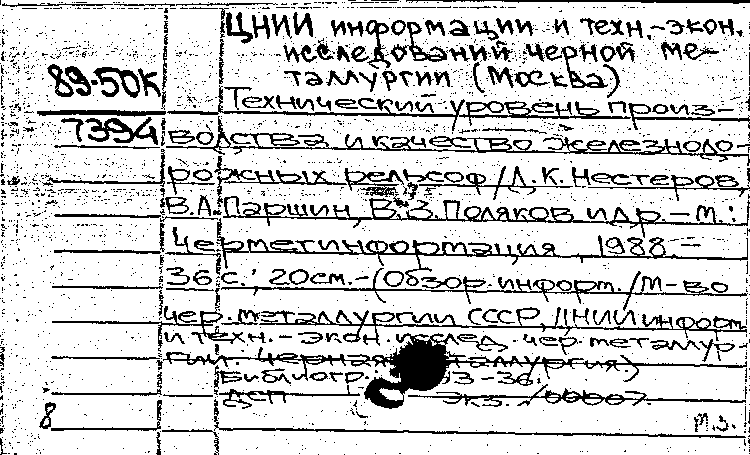 ЦНИИ информации и техн.-экон.
исследований черной ме-
89-50К таллургии (Москва)
Технический уровень произ-
7394 водства и качество железнодо-
рожных рельсоф/Д.К. Нестеров,
В.А. Паршин, В.В. Поляков и др.-М.:
Черметинформация, 1988.-
36 с.; 20 см.-(Обзор. информ./М-во
чер. металлургии СССР, ЦНИИ информ
и техн.-экон. исслед. чер. металлур-
гии. Черная металлургия.)
Библиогр. 33-36.
ДСП экз.
8 М.З.